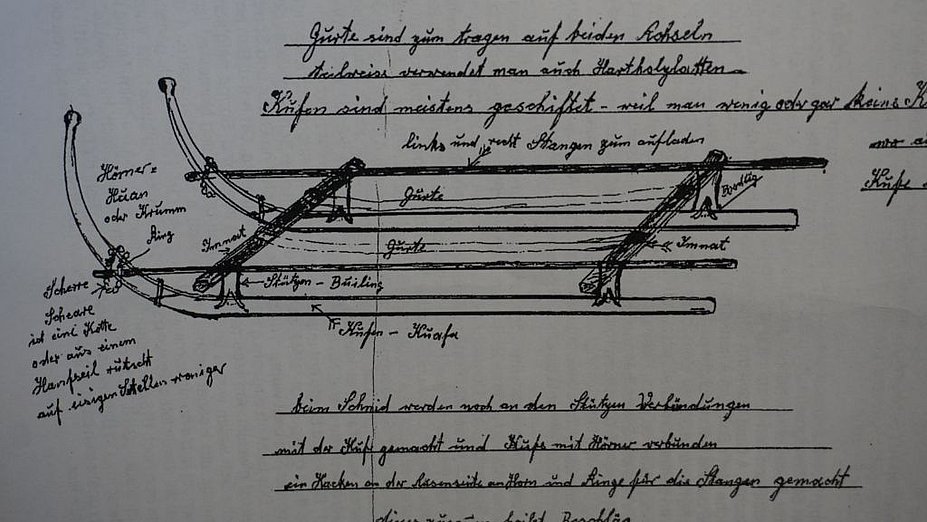 Gurte sind zum tragen auf beiden
teilweise verwendet man auch Hartholzlatten
Kufen sind meistens geschiftet - weil man wenig oder gar keine K
links und recht Stangen zum aufladen
wo
Kufe
Hörner =
oder Krumm
Ring
Gurte
Immat
Gurte
Immat
Scherre
Stützen - Builing
Scheare
ist eine Kette
oder aus einem
Hanfseil rutscht
auf eisigen Stellen weniger
Kufen - Kuafa
beim Schmid werden noch an den Stützen Verbündungen
mit der Kufe gemacht und Kufe mit Hörner verbunden
ein Hacken an der Aasenseite an Horn und Ringe für die Stangen gemacht
heißt Beschläg